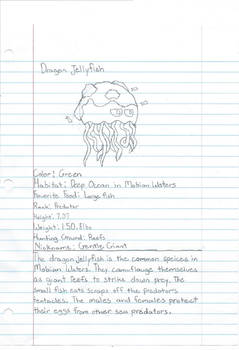 Dragon Jellyfish
Color: Green
Habitat: Deep Ocean in Mobian Waters
Favorite Food: Large fish
Rank: Predator
Height: 7.07
Weight: 150.8lbs
Hunting Ground: Reefs
Nickname: Gentle Giant
The dragon jellyfish is the common speices in
Mobian Waters. They camflauge themselves
as giant reefs to strike down prey. The
small fish eats scraps off the predators
tentacles. The males and females protect
their eggs from other sea predators.